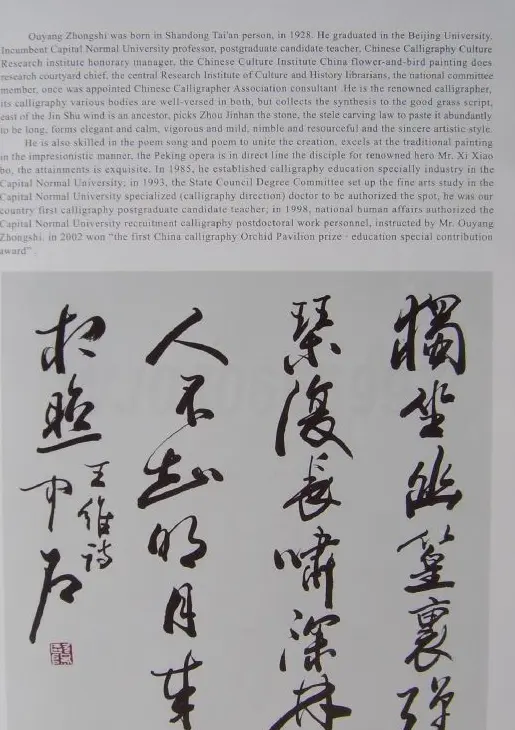 Ouyang Zhongshi was born in Shandong Tai'an person, in 1928. He graduated in the Beijing University,
Incumbent Capital Normal University professor, postgraduate candidate teacher, Chinese Calligraphy Culture
Research institute honorary manager, the Chinese Culture Institute China flower-and-bird painting does
research courtyard chief, the central Research Institute of Culture and History librarians, the national committee
member, once was appointed Chinese Calligrapher Association consultant .He is the renowned calligrapher,
its calligraphy various bodies are well-versed in both, but collects the synthesis to the good grass script,
east of the Jin Shu wind is an ancestor, picks Zhou Jinhan the stone, the stele carving law to paste it abundantly
to be long, forms elegant and calm, vigorous and mild, nimble and resourceful and the sincere artistic style.
He is also skilled in the poem song and poem to unite the creation, excels at the traditional painting
in the impresionistic manner, the Peking opera is in direct line the disciple for renowned hero Mr. Xi Xiao
bo, the attainments is exquisite. In 1985, he established calligraphy education specially industry in the
Capital Normal University; in 1993, the State Council Degree Committee set up the fine arts study in the
Capital Normal University specialized (calligraphy direction) doctor to be authorized the spot, he was our
country first calligraphy postgraduate candidate teacher; in 1998, national human affairs authorized the
Capital Normal University recruitment calligraphy postdoctoral work personnel, instructed by Mr. Ouyang
Zhongshi, in 2002 won "the first China calligraphy Orchid Pavilion prize · education special contribution
award" .
獨坐幽篁裏彈
琴復長嘯深林
人不知明月來
相照
王維詩
中石